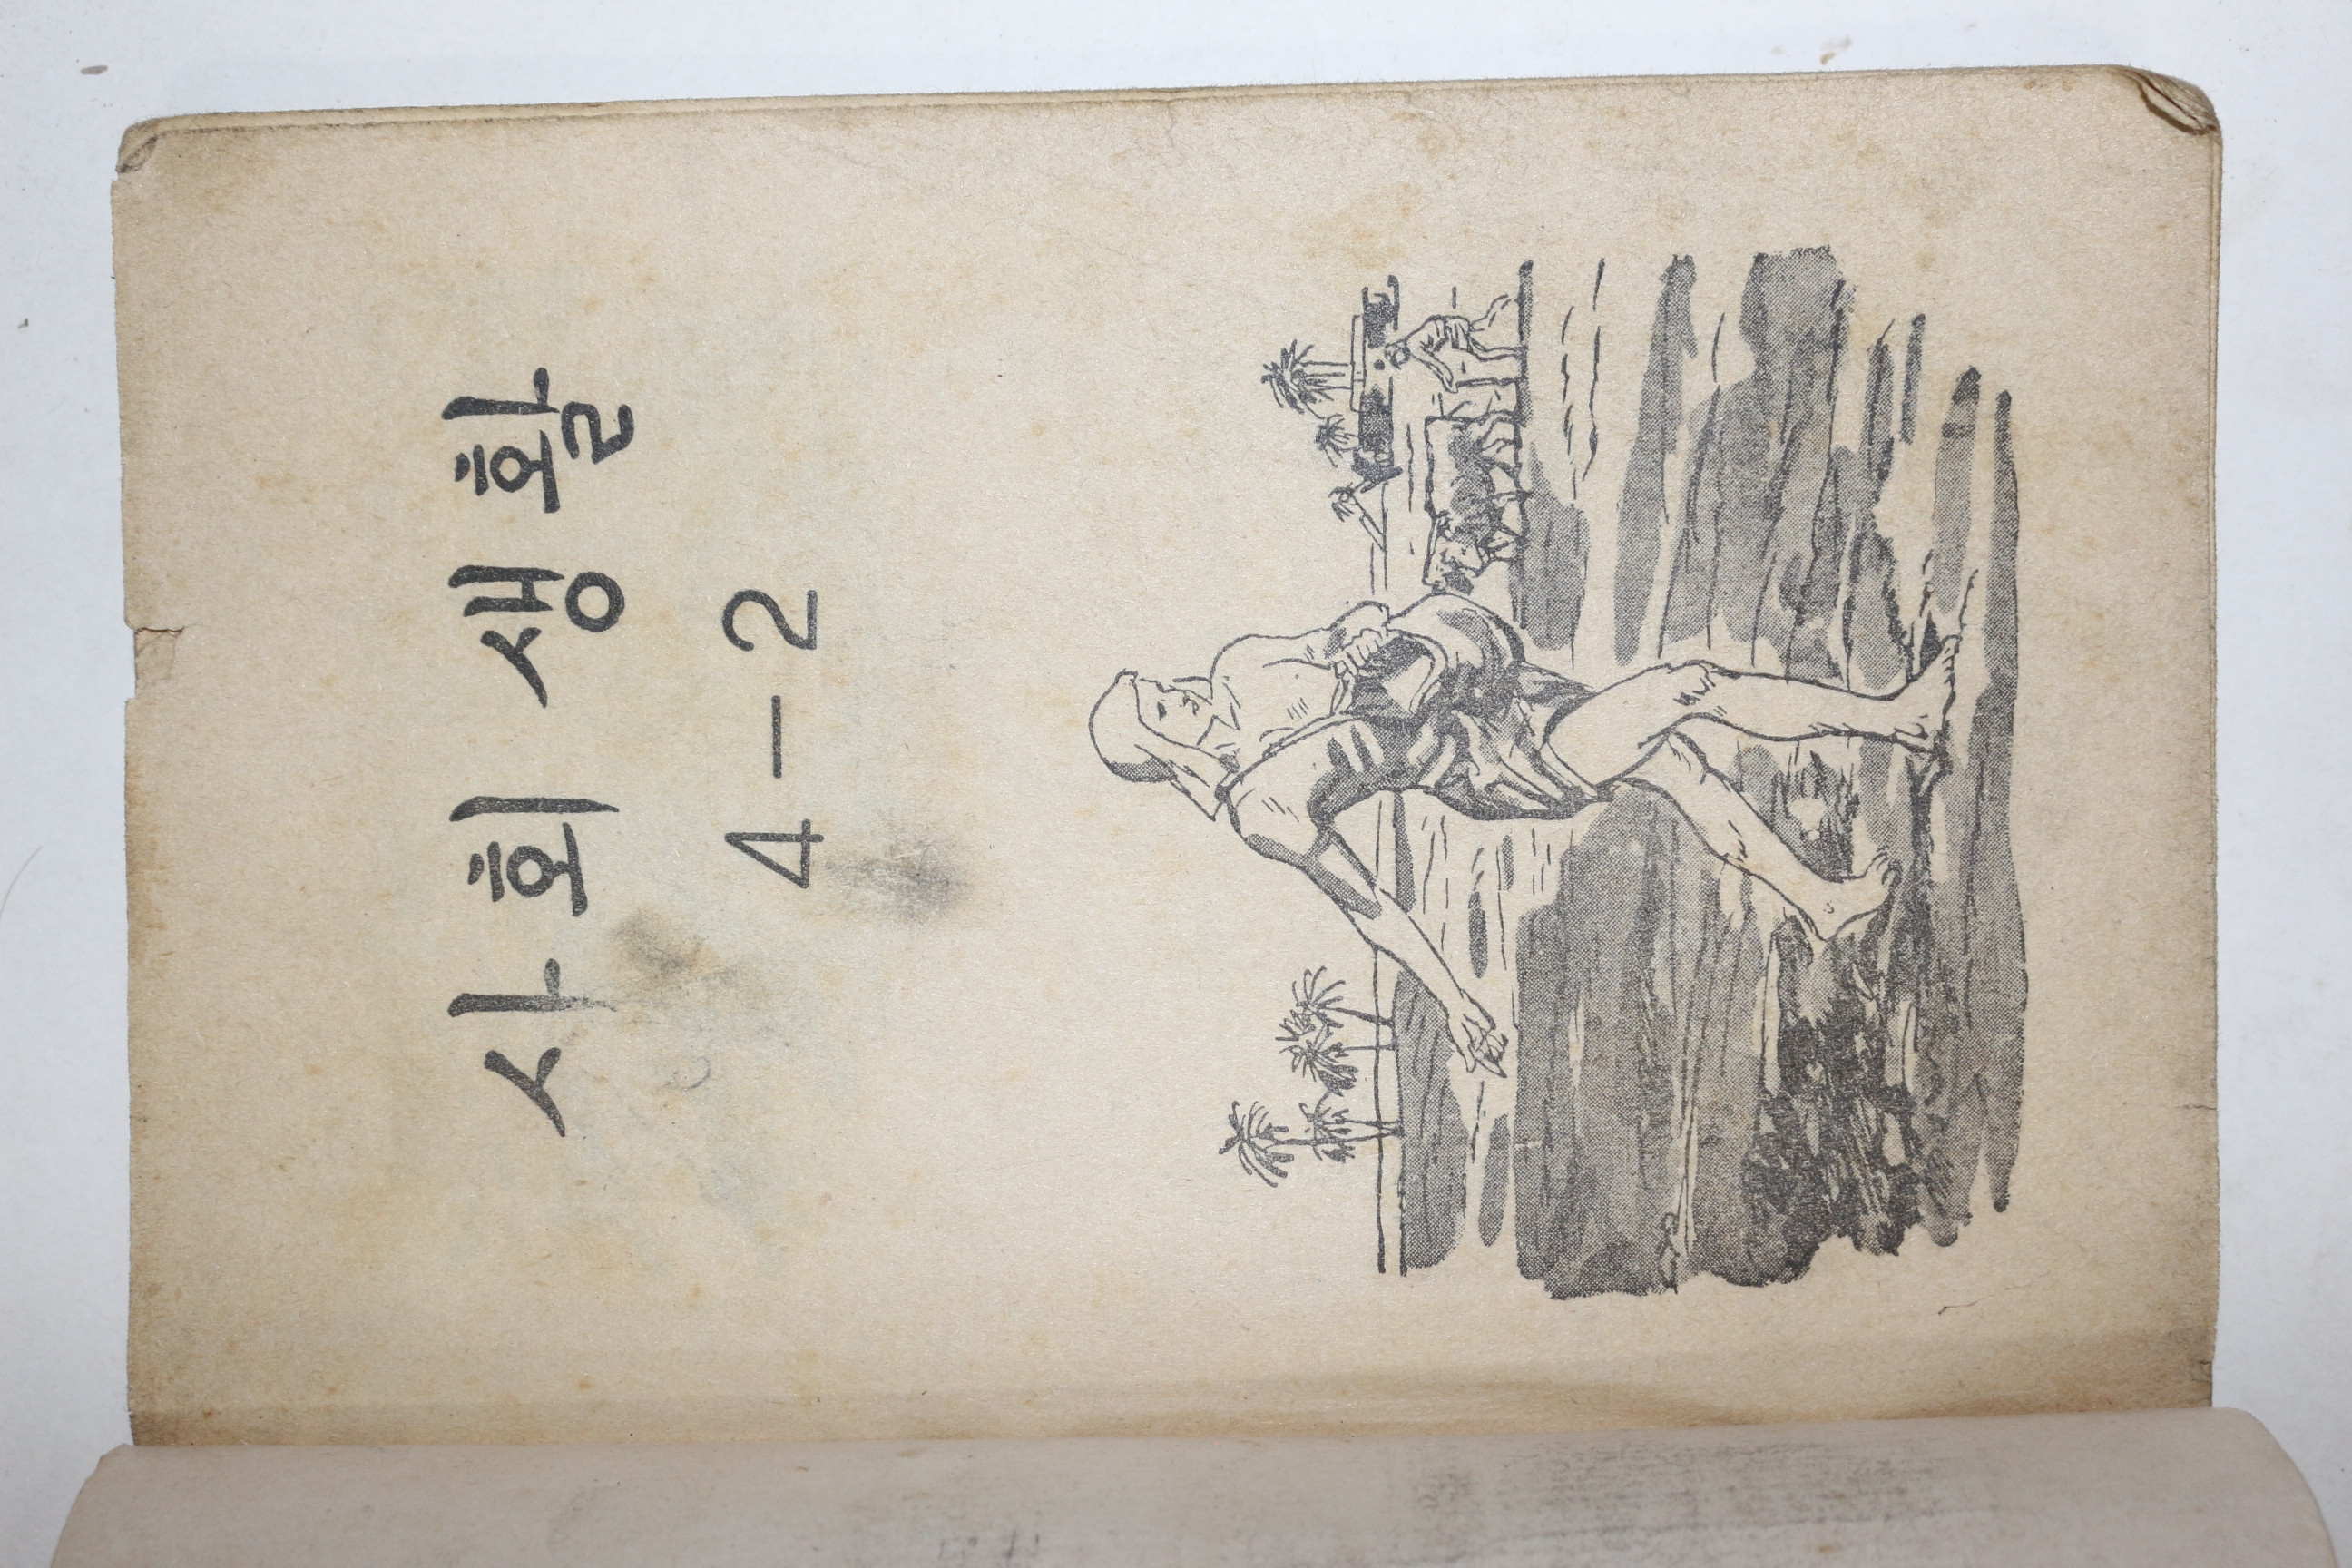 사회 생활
4-2